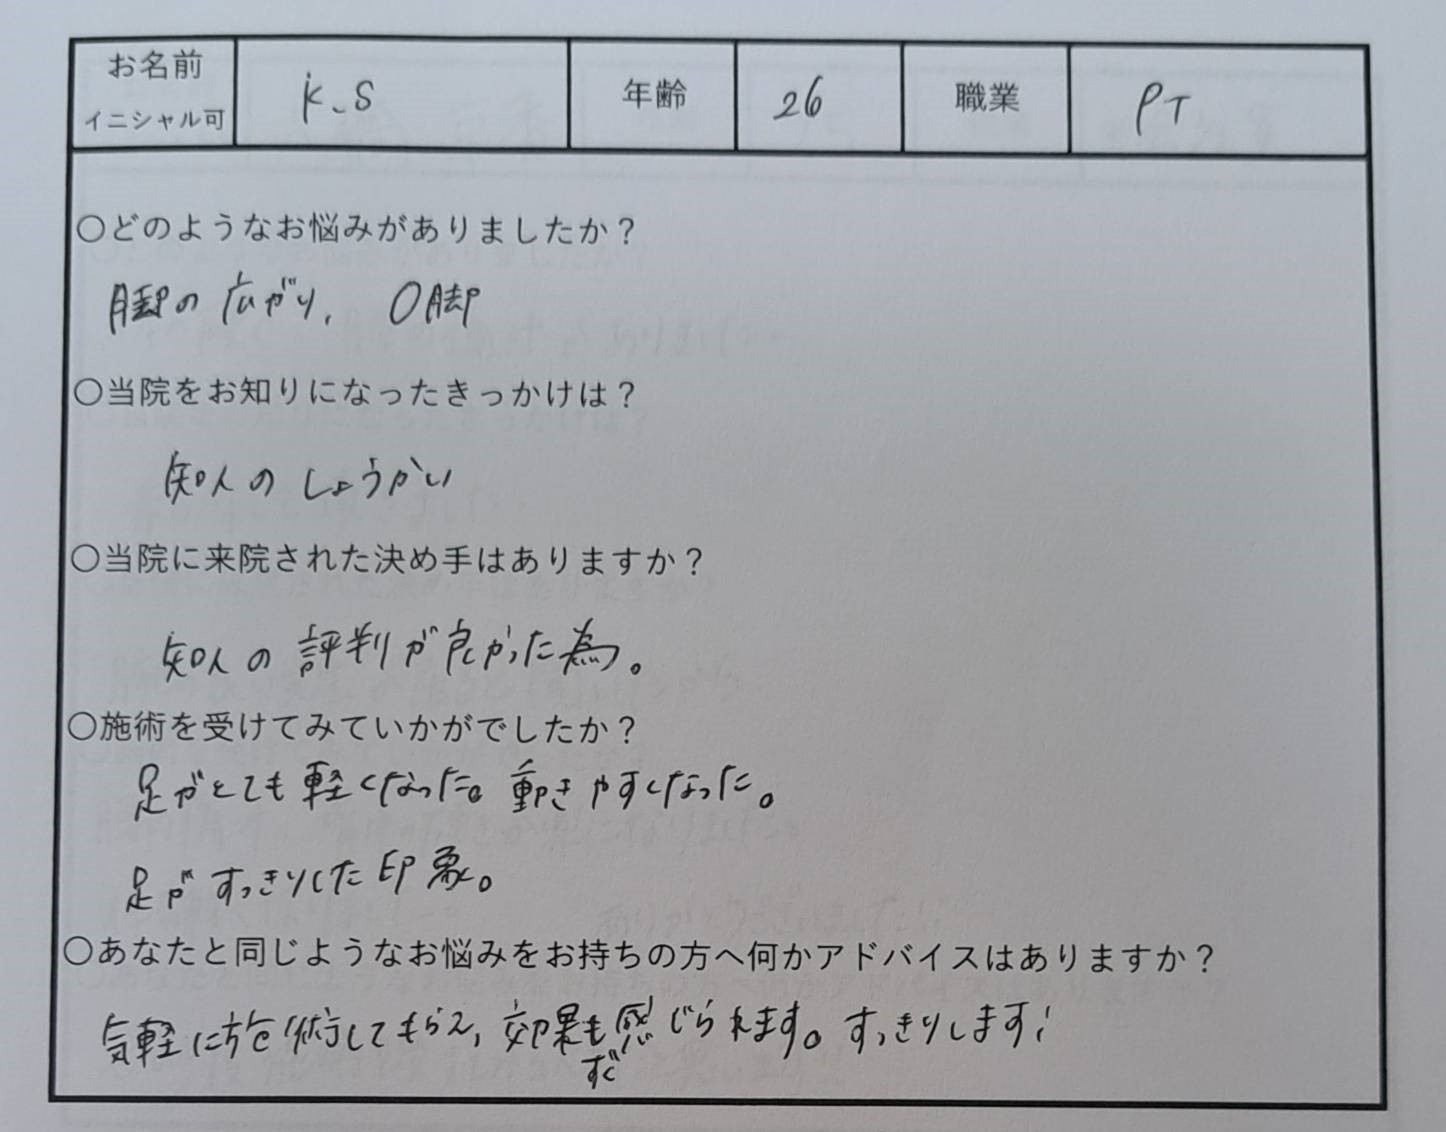 お名前
イニシャル可
K.S
年齢
26
職業
PT
○どのようなお悩みがありましたか？
脚の広がり、O脚
○当院をお知りになったきっかけは？
知人のしょうかい
○当院に来院された決め手はありますか？
知人の評判が良かった為。
○施術を受けてみていかがでしたか？
足がとても軽くなった。動きやすくなった。
足がすっきりした印象。
○あなたと同じようなお悩みをお持ちの方へ何かアドバイスはありますか？
気軽に施術してもらえ、効果も感じられます。すっきりします！
すぐ